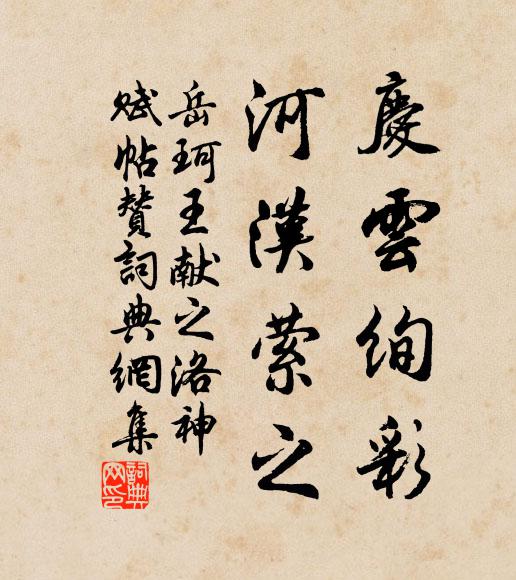 慶雲絢彩
河漢縈之
岳珂王献之洛神
賦帖贊詞典網集
詞典网印